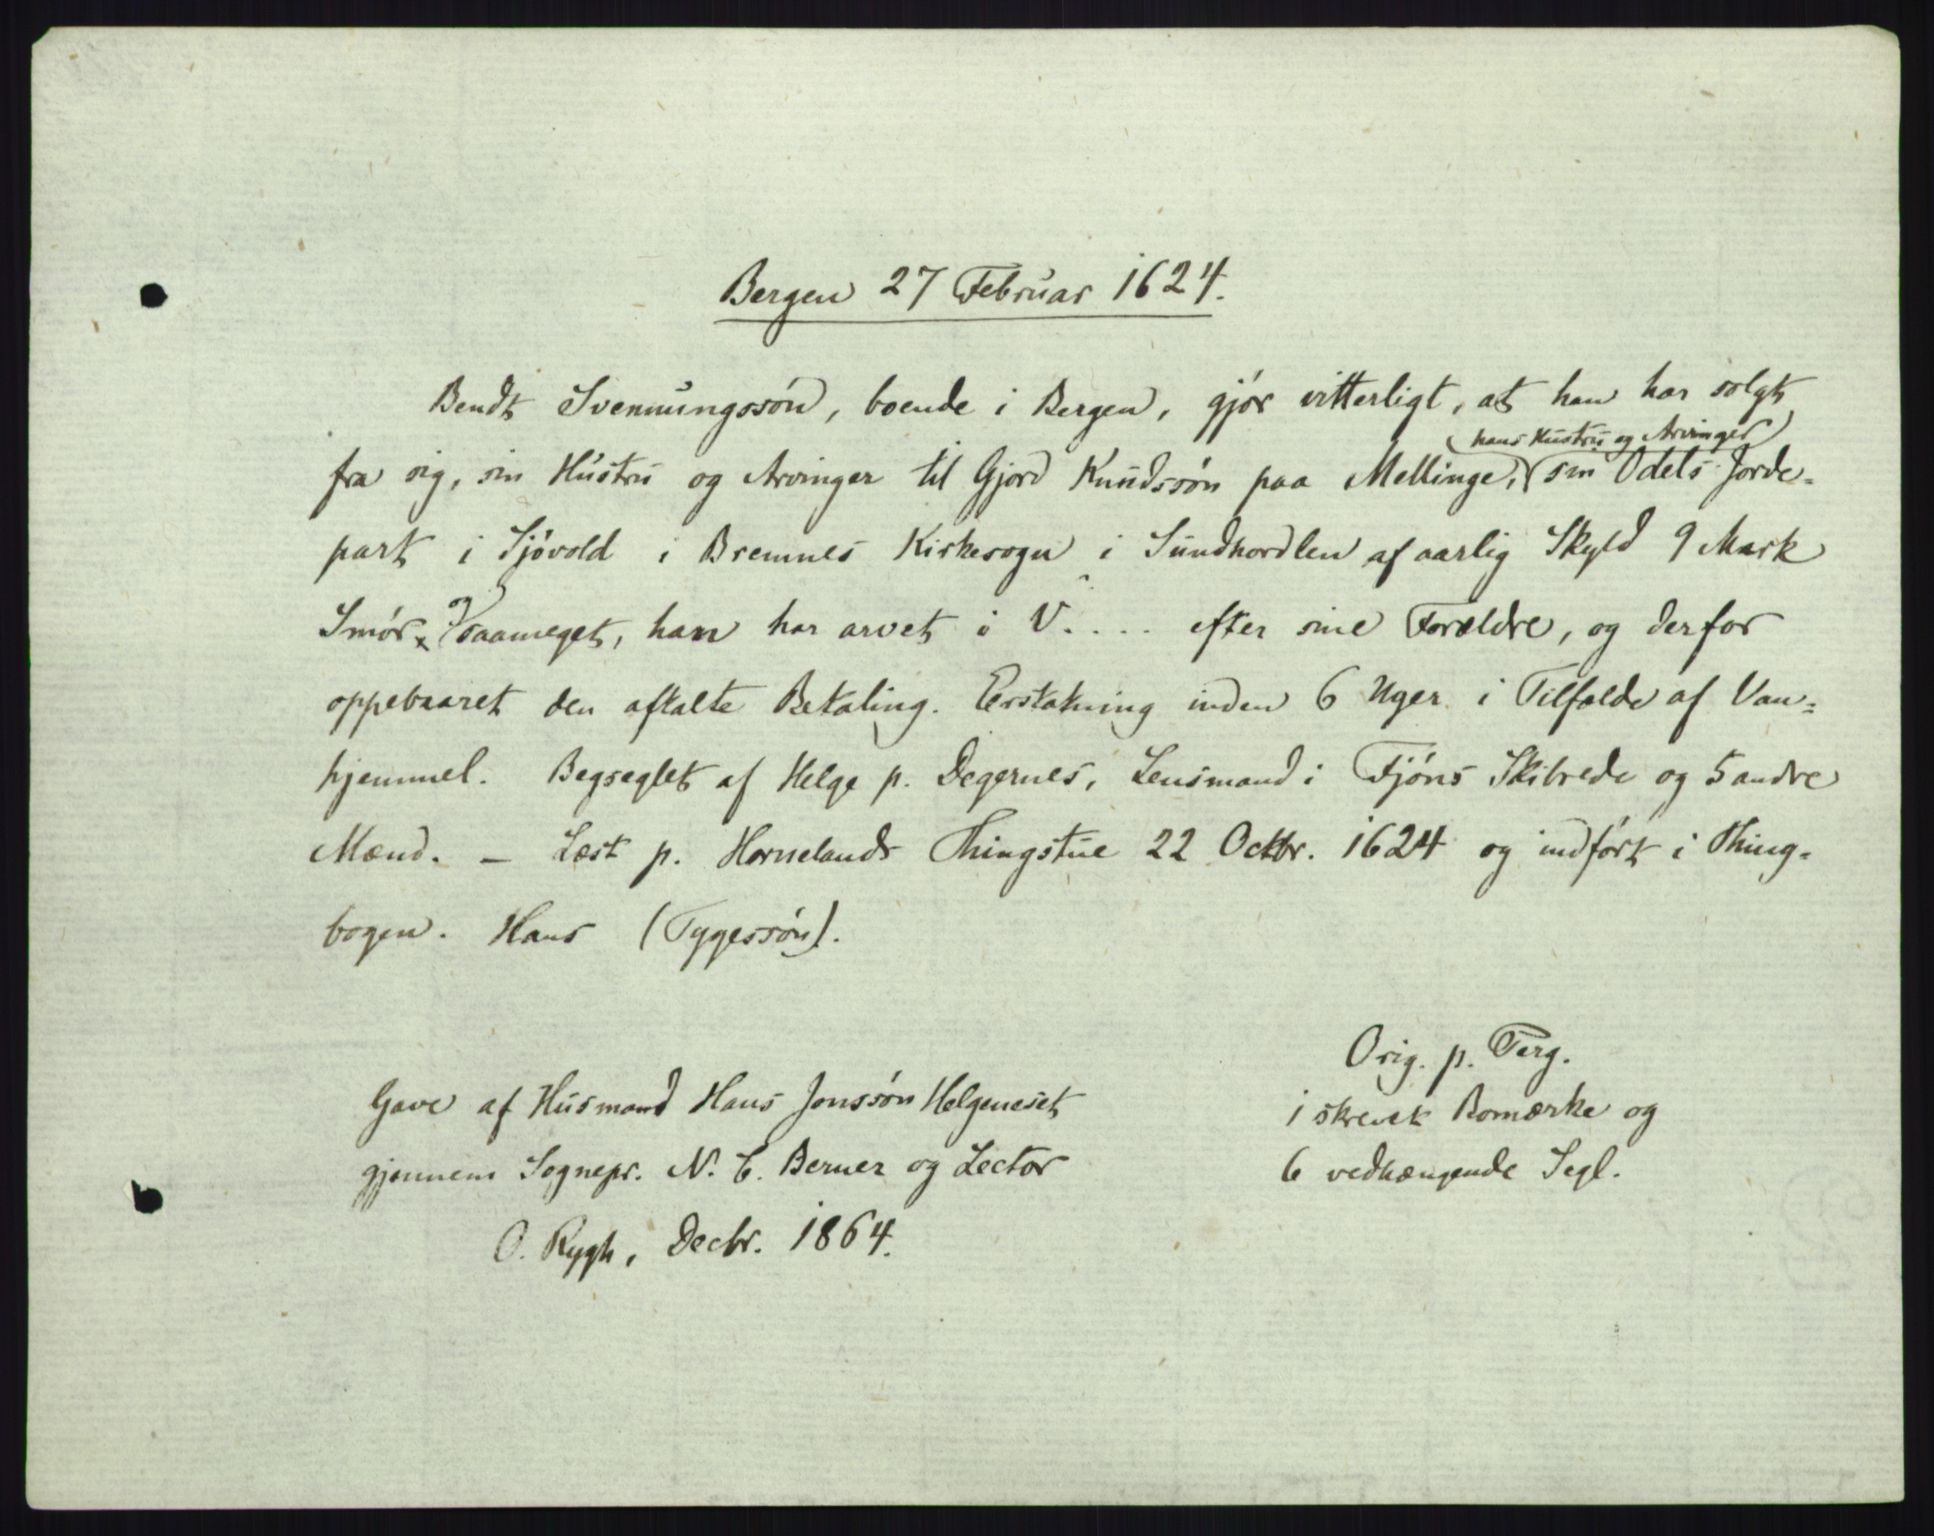 Bergen 27 Februar 1624.
Bendt Svennungssön, boende i Bergen, gjör vitterligt, at han har solgt
fra sig, sin Hustru og Arvinger til Gjord Knudssön paa Mellinge, (hans Hustru og Arvinger) sin Odels Jorde=
part i Sjövold i Bremnes Kirkesogn i Sundhordlen af aarlig Skyld 9 Mark
Smör, og saameget, han har arvet i V.... efter sine Forældre, og derfor
oppebaaret den aftalte Betaling. Erstatning inden 6 Uger i Tilfælde af Van=
hjemmel. Beseglet af Helge p. Degernes, Lensmand i Fjöns Skibrede og 5 andre
Mænd. — Læst p. Hornelands Thingstue 22 Octbr. 1624 og indfört i Thing=
bogen. Hans (Tygessön).
Orig. p. Perg.
1 skrevet Bomærke og
6 vedhængende Segl.
Gave af Husmand Hans Jonssön Helgeneset
gjennem Sognepr. N. C. Berner og Lector
O. Rygh, Decbr. 1864.